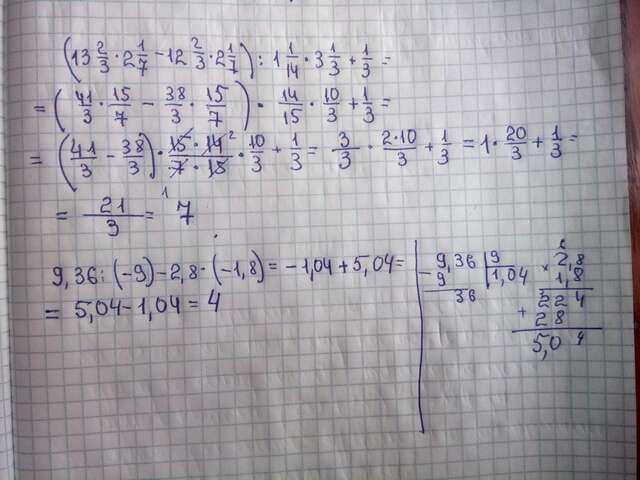 (13 2/3 · 2 1/7 − 12 2/3 · 2 1/7) : 1 1/14 · 3 1/3 + 1/3 =
= (41/3 · 15/7 − 38/3 · 15/7) · 14/15 · 10/3 + 1/3 =
= (41/3 − 38/3) · 15 · 14 2/7 · 15 · 10/3 + 1/3 = 3/3 · 2·10/3 + 1/3 = 1 · 20/3 + 1/3 =
= 21/3 = 7
9,36 : (−9) − 2,8 · (−1,8) = −1,04 + 5,04 =
= 5,04 − 1,04 = 4
9,36 | 9
− 9 | 1,04
36
2,8
× 1,8
224
+ 28
5,04